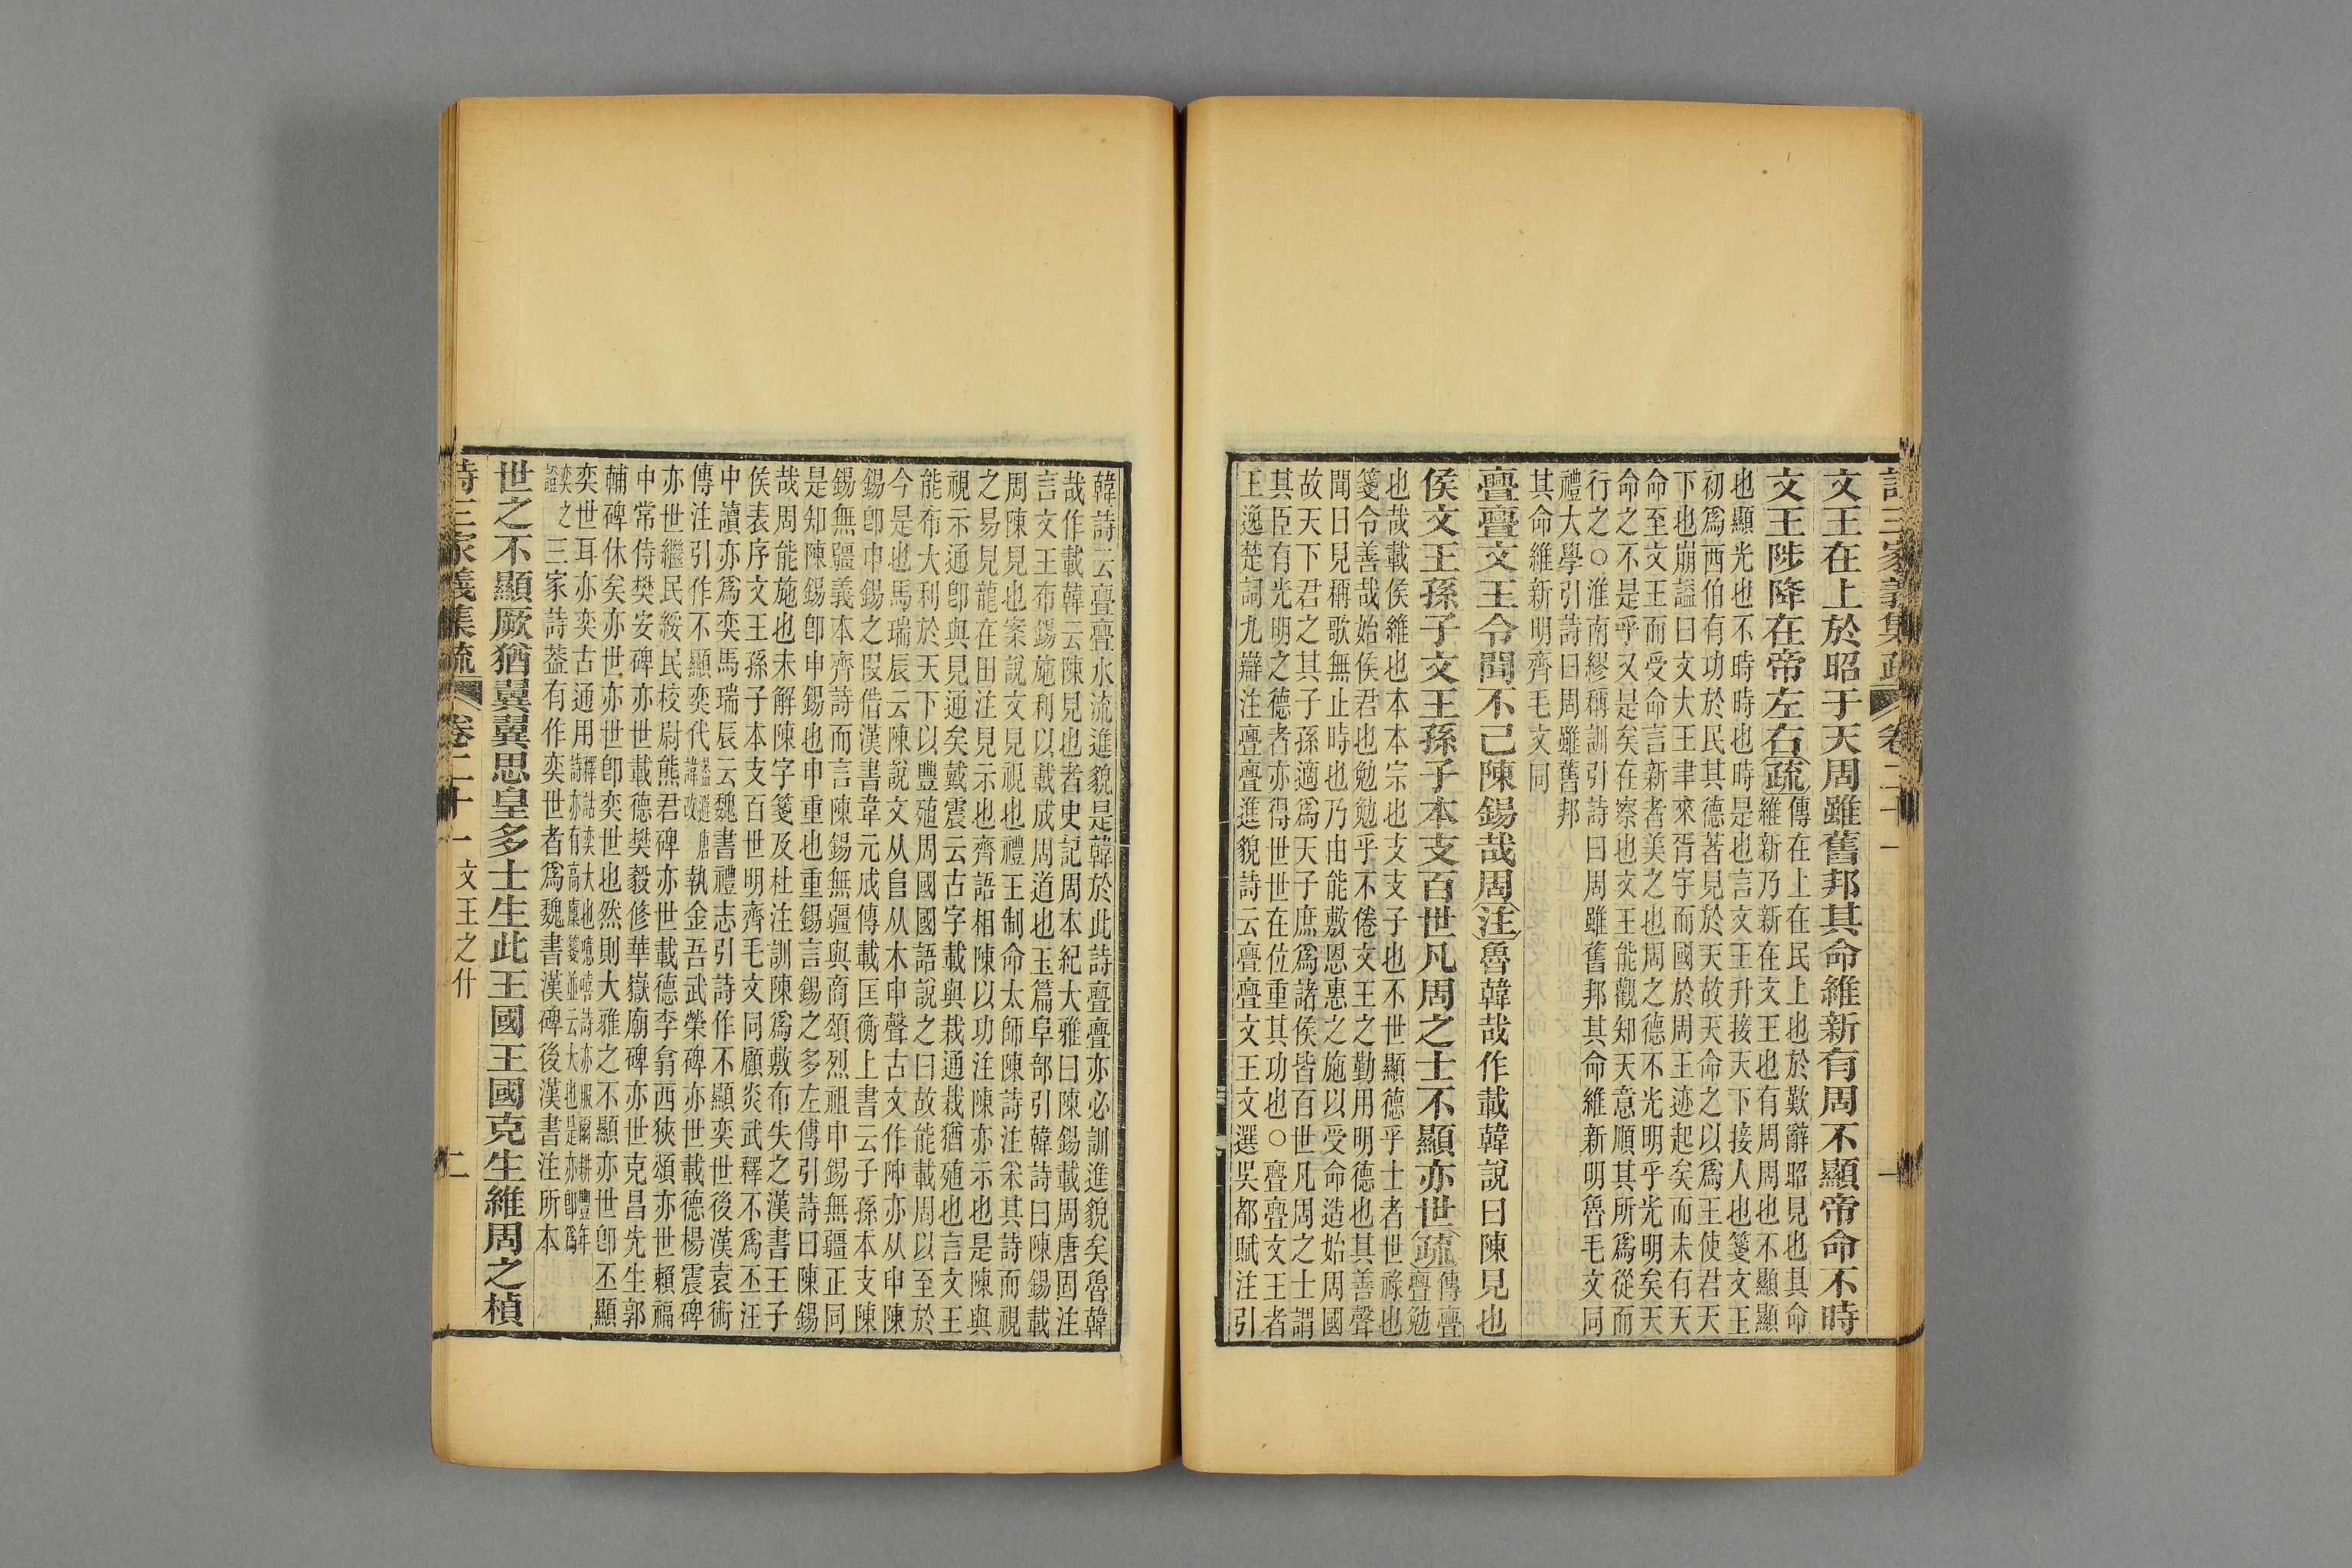 詩三家義集疏 卷二十一 一
文王在上於昭于天周雖舊邦其命維新有周不顯帝命不時
文王陟降在帝左右疏傳在上在民上也於歎辭昭見也其命
維新乃新在文王也有周周也不顯顯
也顯光也不時時也時是也言文王升接天下接人也箋文王
初爲西伯有功於民其德著見於天故天命之以爲王使君天
下也崩謚曰文大王聿來胥宇而國於周王迹起矣而未有天
命至文王而受命言新者美之也周之德不光明乎光明矣天
命之不是乎又是矣在察也文王能觀知天意順其所爲從而
行之○淮南繆稱訓引詩曰周雖舊邦其命維新明魯毛文同
禮大學引詩曰周雖舊邦
其命維新明齊毛文同
亹亹文王令聞不已陳錫哉周注魯韓哉作載韓說曰陳見也
侯文王孫子文王孫子本支百世凡周之士不顯亦世疏傳亹
亹勉
也哉載侯維也本本宗也支支子也不世顯德乎士者世祿也
箋令善哉始侯君也勉勉乎不倦文王之勤用明德也其善聲
聞日見稱歌無止時也乃由能敷恩惠之施以受命造始周國
故天下君之其子孫適爲天子庶爲諸侯皆百世凡周之士謂
其臣有光明之德者亦得世世在位重其功也○亹亹文王者
王逸楚詞九辯注亹亹進貌詩云亹亹文王文選吳都賦注引
韓詩云亹亹水流進貌是韓於此詩亹亹亦必訓進貌矣魯韓
哉作載韓云陳見也者史記周本紀大雅曰陳錫載周唐固注
言文王布錫施利以載成周道也玉篇阜部引韓詩曰陳錫載
周陳見也案說文見視也禮王制命太師陳詩注采其詩而視
之易見龍在田注見示也齊語相陳以功注陳亦示也是陳與
視示通卽與見通矣戴震云古字載與栽通栽猶殖也言文王
能布大利於天下以豐殖周國國語說之曰故能載周以至於
今是也馬瑞辰云陳說文从𨸏从木申聲古文作陣亦从申陳
錫卽申錫之叚借漢書韋元成傳載匡衡上書云子孫本支陳
錫無疆義本齊詩而言陳錫無疆與商頌烈祖申錫無疆正同
是知陳錫卽申錫也申重也重錫言錫之多左傳引詩曰陳錫
哉周能施也未解陳字箋及杜注訓陳爲敷布失之漢書王子
侯表序文王孫子本支百世明齊毛文同顧炎武釋不爲丕汪
中讀亦爲奕馬瑞辰云魏書禮志引詩作不顯奕世後漢袁術
傳注引作不顯奕代蓋避唐
諱改執金吾武榮碑亦世載德楊震碑
亦世繼民綏民校尉熊君碑亦世載德李翕西狹頌亦世賴福
中常侍樊安碑亦世載德樊毅修華嶽廟碑亦世克昌先生郭
輔碑休矣亦世亦世卽奕世也然則大雅之不顯亦世卽丕顯
奕世耳亦奕古通用釋詁奕大也噫嘻詩亦服爾耕豐年
詩亦有高廩箋並云大也是亦卽爲
奕之
證三家詩葢有作奕世者爲魏書漢碑後漢書注所本
世之不顯厥猶翼翼思皇多士生此王國王國克生維周之楨
詩三家義集疏 卷二十一 文王之什 二